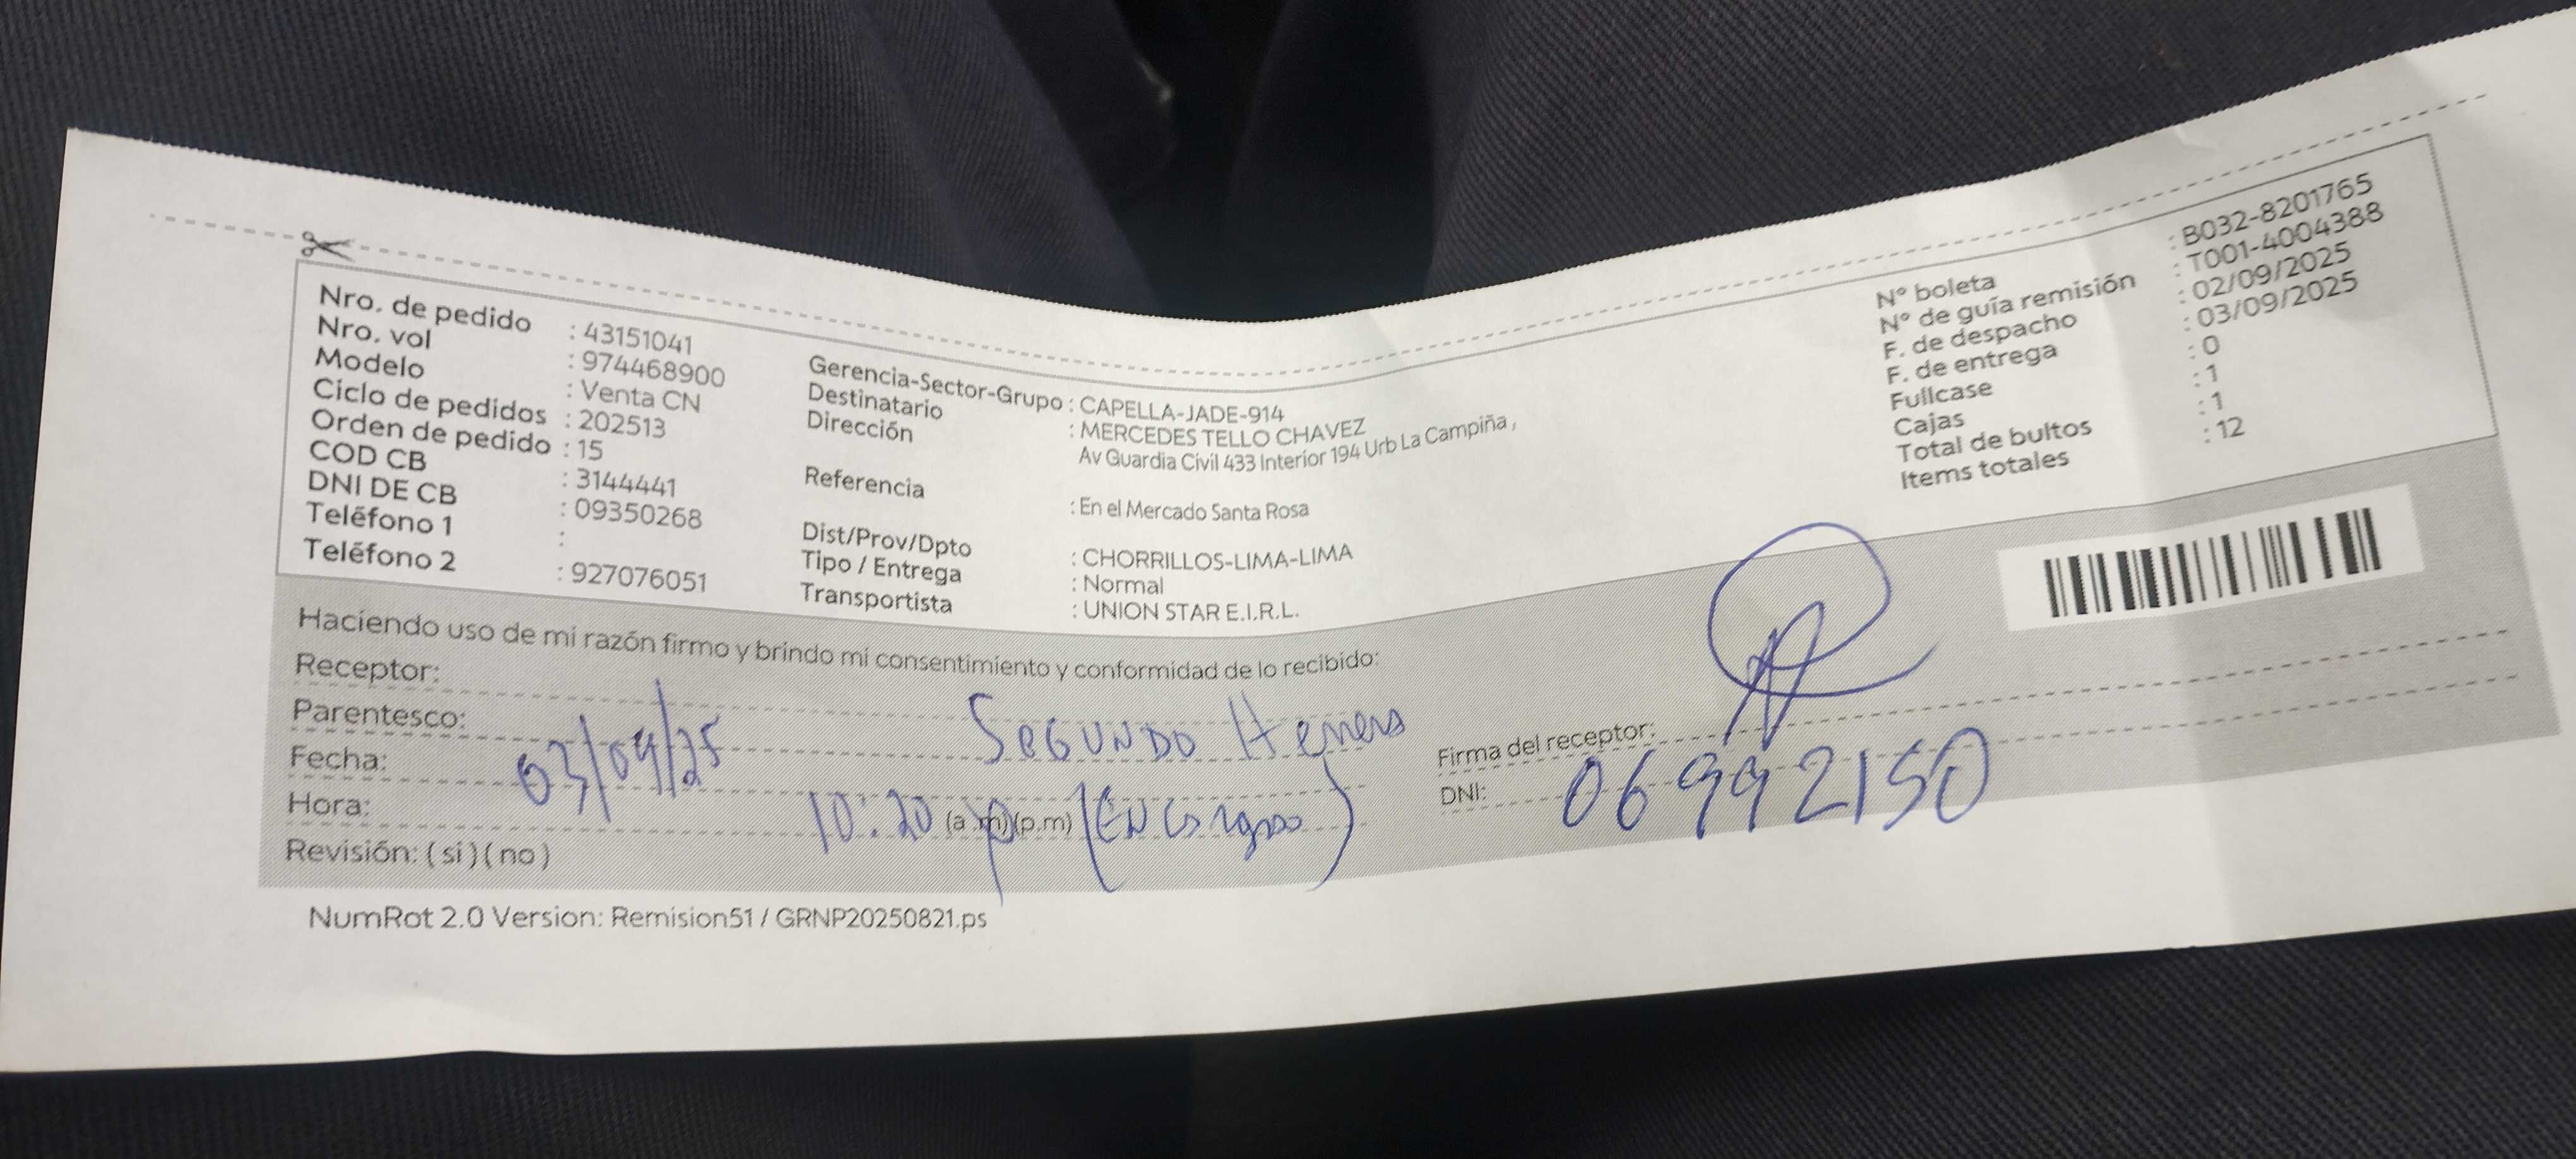 Nro. de pedido : 43151041
Nro. vol : 974468900
Modelo : Venta CN
Ciclo de pedidos : 202513
Orden de pedido : 15
COD CB : 3144441
DNI DE CB : 09350268
Teléfono 1 :
Teléfono 2 : 927076051
Gerencia-Sector-Grupo : CAPELLA-JADE-914
Destinatario : MERCEDES TELLO CHAVEZ
Dirección Av Guardia Civil 433 Interior 194 Urb La Campiña ,
Referencia : En el Mercado Santa Rosa
Dist/Prov/Dpto : CHORRILLOS-LIMA-LIMA
Tipo / Entrega : Normal
Transportista : UNION STAR E.I.R.L.
N° boleta : B032-8201765
N° de guía remisión : T001-4004388
F. de despacho : 02/09/2025
F. de entrega : 03/09/2025
Fullcase : 0
Cajas : 1
Total de bultos : 1
Items totales : 12
Haciendo uso de mi razón firmo y brindo mi consentimiento y conformidad de lo recibido:
Receptor:
Parentesco: SEGUNDO
Fecha: 03/09/25
Hora: 10:20 (a.m)(p.m)
Revisión: ( si ) ( no )
Firma del receptor:
DNI: 06992150
NumRot 2.0 Version: Remision51 / GRNP20250821.ps